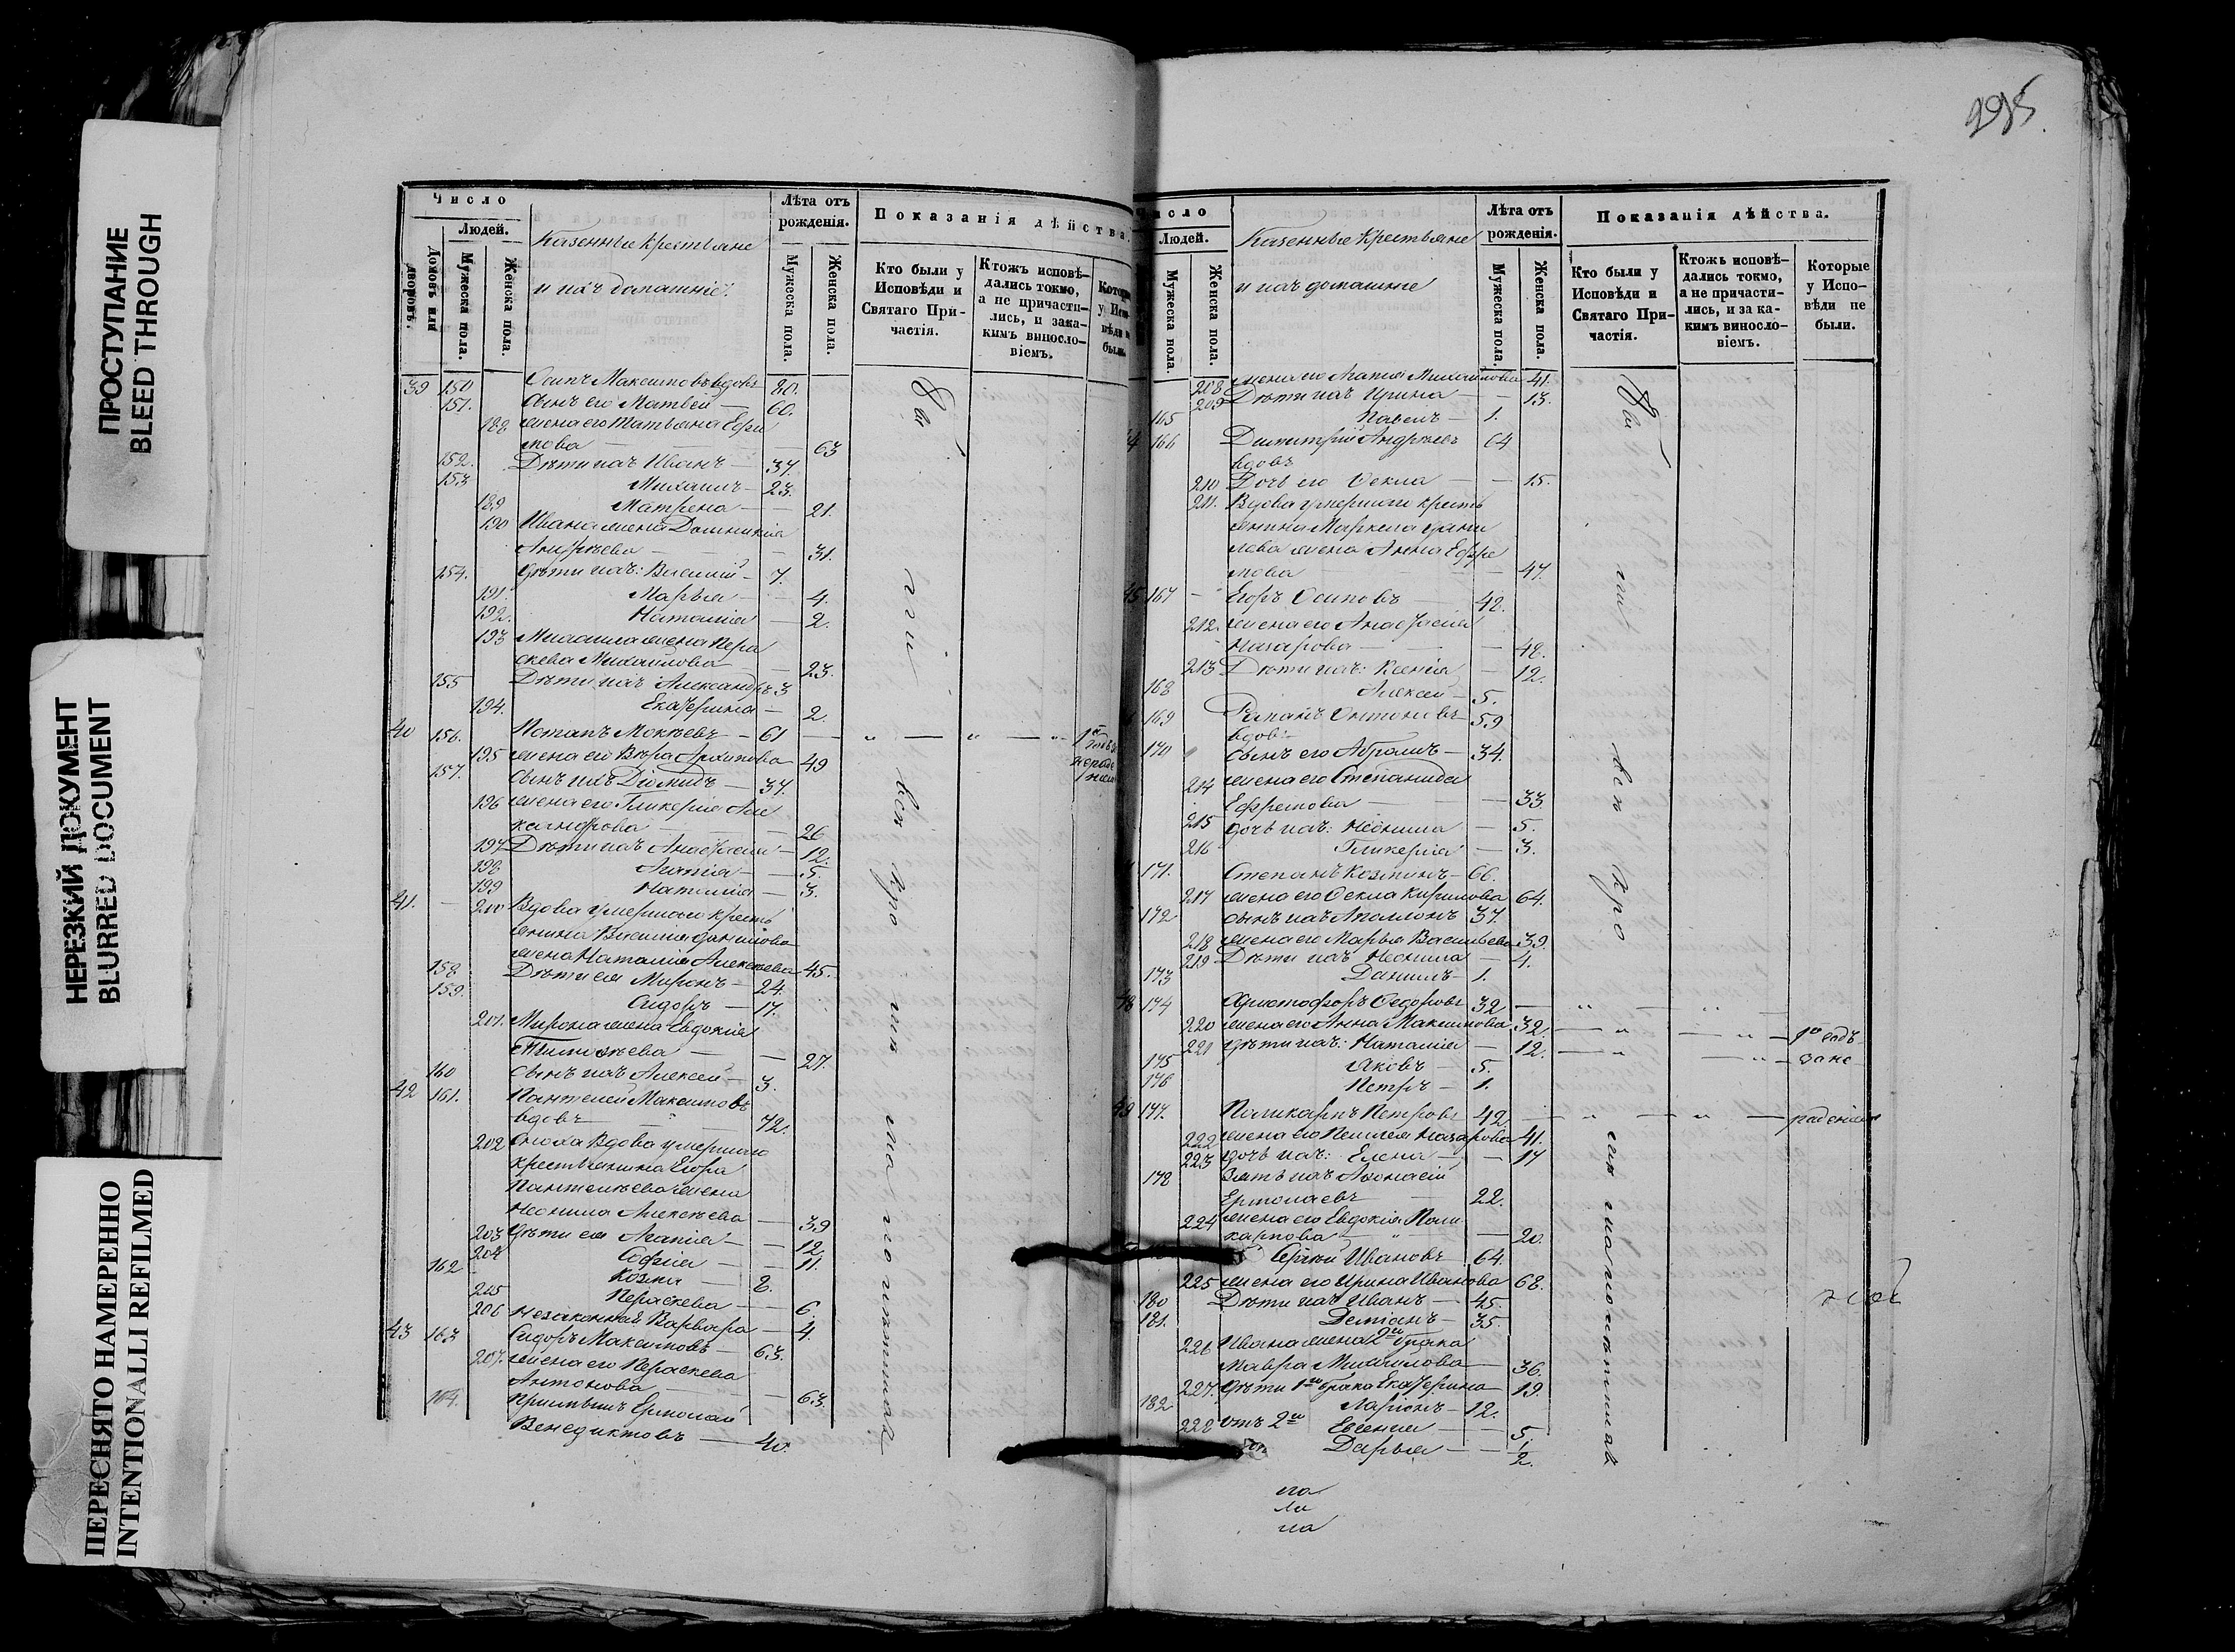 ПРОСТУПАНИЕ
BLEED THROUGH
НЕРЕЗКИЙ ДОКУМЕНТ
BLURRED DOCUMENT
ПЕРЕСНЯТО НАМЕРЕННО
INTENTIONALLI REFILMED
Число
Людей.
Домовъ или дворовъ.
Мужеска пола.
Женска пола.
Казенные крестьяне
и ихъ домашніе.
Лѣта отъ рожденія.
Мужеска пола.
Женска пола.
Показанія дѣйства.
Кто были у Исповѣди и Святаго Причастія.
Ктожъ исповѣдались токмо, а не причастились, и за какимъ винословіемъ.
39 150 Осипъ Максимовъ вдовъ 80.
151. Сынъ его Матвей — 60.
188 жена его Татьяна Ефимова — 63
152. Дѣти ихъ Иванъ — 37.
153 Михаилъ — 23.
189 Матрена — 21.
190 Ивана жена Домникія
Андреева — 31.
154. Дѣти ихъ: Василій — 7.
191. Марья — 4.
192. Наталія — 2.
193 Михаила жена Параскева Михайлова — 23.
155 Дѣти ихъ Александръ 3
194. Екатерина — 2.
40 156. Потапъ Мокѣевъ — 61
195 жена его Вѣра Архипова 49
157. Сынъ ихъ Діомидъ — 37.
196 жена его Гликерія
26
197 Дѣти ихъ Анастасія — 12.
198 Агапія — 5.
199 Наталія — 3.
41. 200 Вдова умершаго крестьянина Василія Данилова
жена Наталія Алексѣева 45.
158. Дѣти ея Миронъ — 24.
159. Сидоръ — 17.
201. Мирона жена Евдокія
Тимофѣева — 27.
160 Сынъ ихъ Алексей — 3.
42 161. Пантелей Максимовъ
вдовъ 72.
202 Сноха Вдова умершаго
крестьянина Егора
Пантелѣева жена
Неонила Алексѣева — 39
203 Дѣти ея Агапія — 12.
204 Софія — 11.
162 Козма — 8.
205 Параскева — 6.
206 Незаконная Варвара — 4.
43 163 Сидоръ Максимовъ — 63.
207. жена его Параскева
Антонова — 63.
164. Ермолай
Венедиктовъ — 40.
295.
Число
Людей.
Мужеска пола.
Женска пола.
Казенные крестьяне
и ихъ домашніе
Лѣта отъ рожденія.
Мужеска пола.
Женска пола.
Показанія дѣйства.
Кто были у Исповѣди и Святаго Причастія.
Ктожъ исповѣдались токмо, а не причастились, и за какимъ винословіемъ.
Которые у Исповѣди не были.
208 жена его Агапія Михайлова 41.
209 Дѣти ихъ Ирина — 13.
165 Павелъ — 1.
166 Димитрій Андреевъ 64
вдовъ
210 Дочь его Ѳекла — 15.
211. Вдова умершаго крестьянина Маркела Данилова жена Анна Ефремова — 47.
45 167 Егоръ Осиповъ 48.
212. жена его Анастасія
Назарова — 48.
213 Дѣти ихъ: Ксенія — 12.
168 Алексей — 5.
169 Антоновъ 59
вдовъ
170 Сынъ его Абрамъ — 34.
214 жена его Степанида
Ефремова — 33
215 дочь ихъ: Неонила — 5.
216 Гликерія — 3.
171. Степанъ Козминъ — 66.
217 жена его Ѳекла Кирилова 64.
172 сынъ ихъ Аполлонъ 37.
218 жена его Марья Васильева 39.
219 Дѣти ихъ Неонила — 4.
173 Данилъ — 1.
48 174 Христофоръ Ѳедоровъ 32
220 жена его Анна Максимова 32.
221 Дѣти ихъ: Наталія — 12.
175 Яковъ — 5.
176 Петръ — 1.
49 177. Поликарпъ Петровъ 42
222 жена его Назарова 41.
223 дочь ихъ: Елена — 17
178 Зять ихъ Аѳонасій
Ермолаевъ 22.
224 жена его Евдокія Поликарпова — 20.
Сергѣй Ивановъ — 64.
225 жена его Ирина Иванова 68.
180 Дѣти ихъ Иванъ — 45.
181. Демьянъ — 35.
226 Ивана жена 2го брака
Мавра Михайлова — 36.
227. Дѣти 1го брака Екатерина 19
182 Ларіонъ — 12.
228 отъ 2го Евгенія — 5.
Дарья — 1/2.